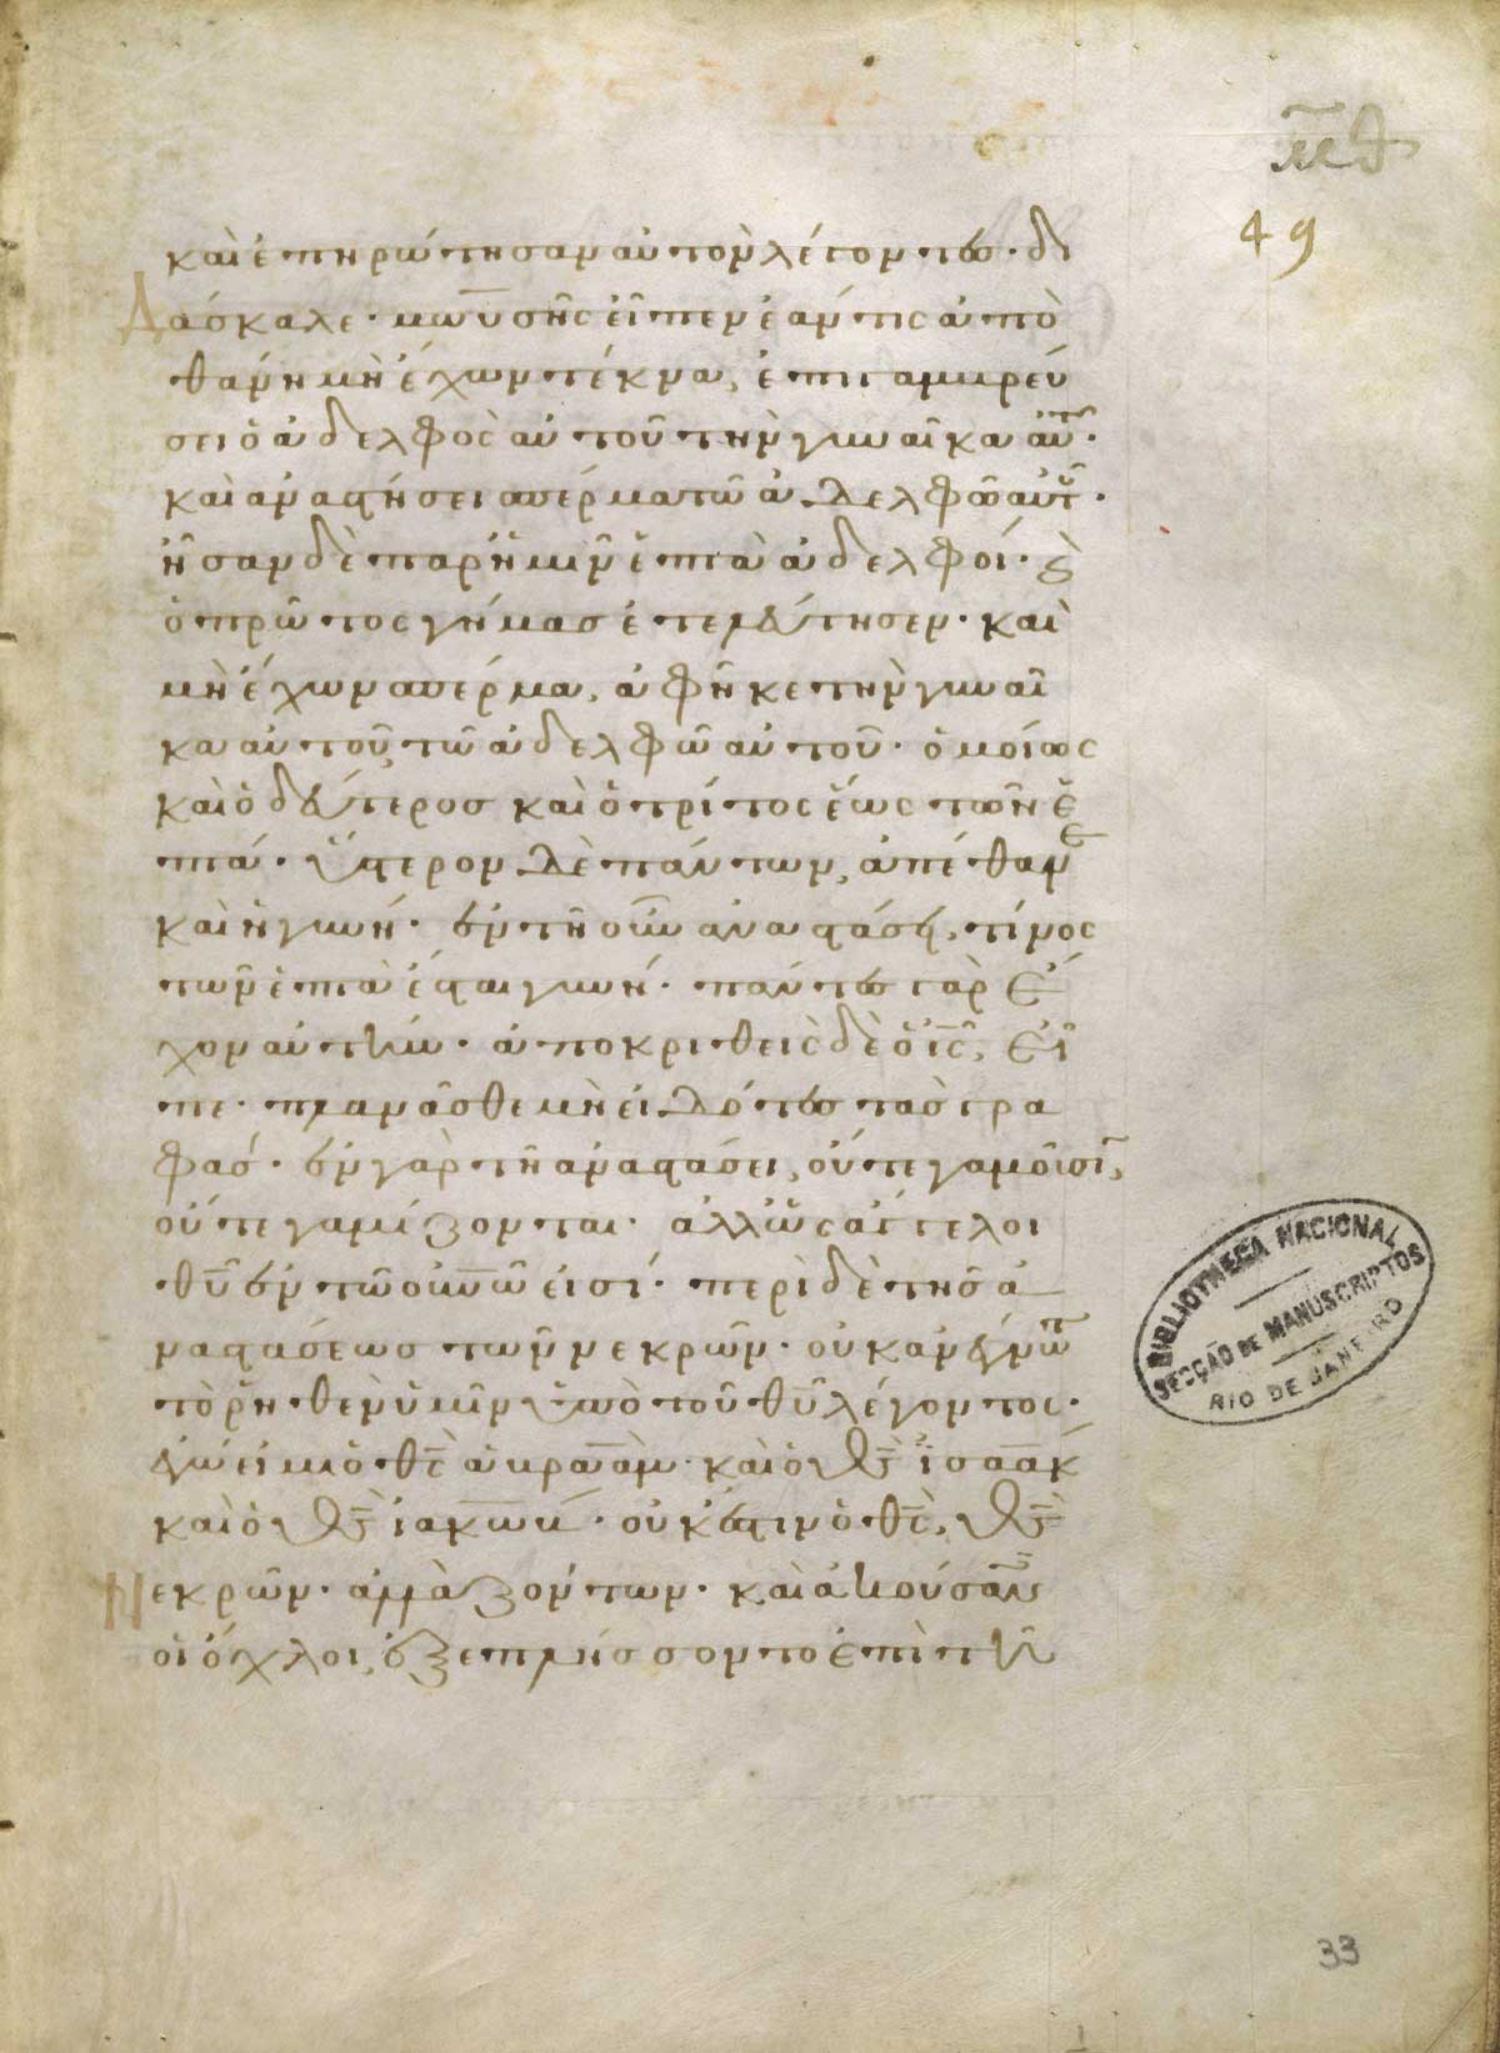 μθ
49
καὶ ἐπηρώτησαν αὐτὸν λέγοντες· δι
Δάσκαλε· μωϋσῆς εἶπεν ἐάν τις ἀπο
θάνη μὴ ἔχων τέκνα, ἐπιγαμβρεύ
σει ὁ ἀδελφὸς αὐτοῦ τὴν γυναῖκα αὐτ·
καὶ ἀναστήσει σπέρμα τῶ ἀδελφῶ αὐτοῦ·
ἦσαν δὲ παρ' ἡμῖν ἑπτὰ ἀδελφοί· καὶ
ὁ πρῶτος γήμασ ἐτελεύτησεν· καὶ
μὴ ἔχων σπέρμα, ἀφῆκε τὴν γυναῖ
κα αὐτοῦ τῶ ἀδελφῶ αὐτοῦ· ὁμοίως
καὶ ὁ δεύτεροσ καὶ ὁ τρίτος ἕως τῶν ἑ
πτά· ὕστερον δὲ πάντων, ἀπέθανε
καὶ ἡ γυνή· ἐν τῆ οὖν ἀναστάσει, τίνος
τῶν ἑπτὰ ἔσται γυνή· πάντες γὰρ ἔ
χον αὐτήν· ἀποκριθεὶς δὲ ὁ ις, εἶ
πε· πλανᾶσθε μὴ εἰδότες τὰσ γρα
φάσ· ἐν γὰρ τῆ ἀναστάσει, οὔτε γαμοῦσιν,
οὔτε γαμίζονται· ἀλλ' ὡς ἄγγελοι
θυ ἐν τῶ ουνω εἰσί· περὶ δὲ τῆσ ἀ
ναστάσεωσ τῶν νεκρῶν· οὐκ ἀνέγνωτ
τὸ ῥηθὲν ὑμῖν ὑπὸ τοῦ θυ λέγοντος·
ἐγώ εἰμι ὁ θς ἀβραάμ· καὶ ὁ θς ἰσαάκ
καὶ ὁ θς ἰακώβ· οὐκ ἔστιν ὁ θς, θς
Νεκρῶν· ἀλλὰ ζόντων· καὶ ἀκούσαντ
οἱ ὄχλοι, ἐξεπλήσσοντο ἐπὶ τῆ
BIBLIOTHECA NACIONAL
SECÇÃO DE MANUSCRIPTOS
RIO DE JANEIRO
33